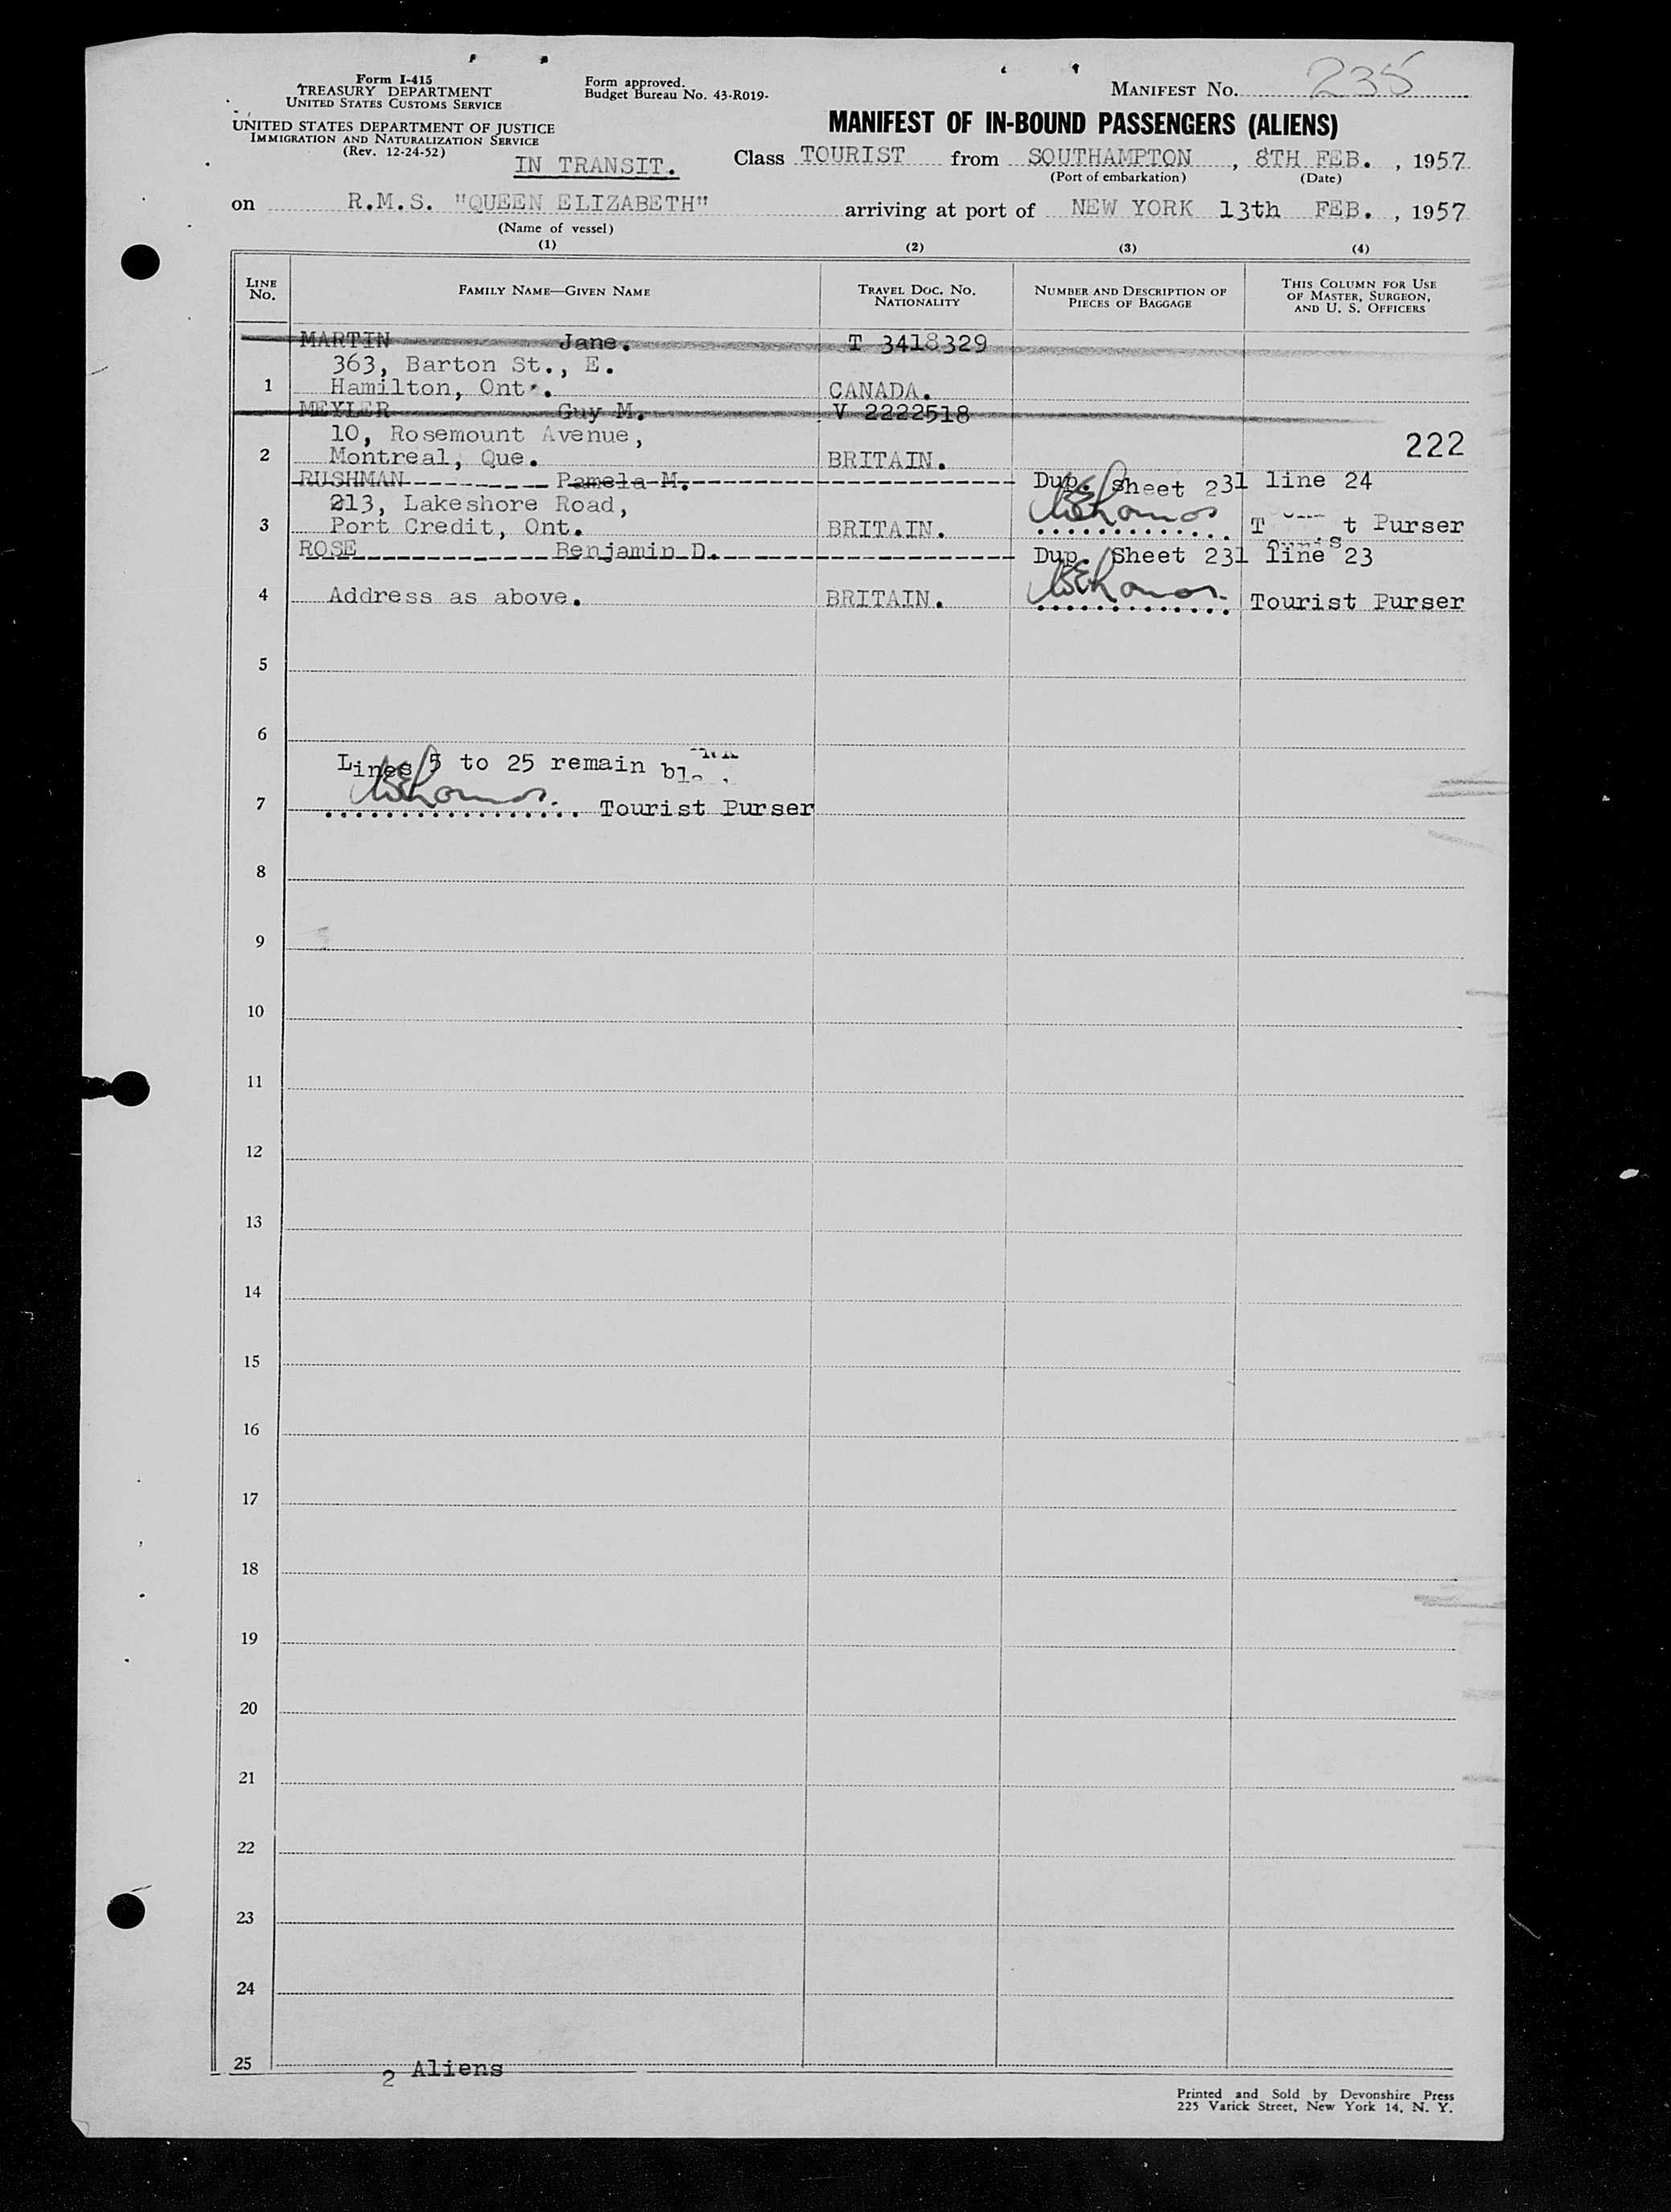 Form I-415
TREASURY DEPARTMENT
UNITED STATES CUSTOMS SERVICE
UNITED STATES DEPARTMENT OF JUSTICE
IMMIGRATION AND NATURALIZATION SERVICE
(Rev. 12-24-52)
Form approved.
Budget Bureau No. 43-R019-
MANIFEST NO. 235
MANIFEST OF IN-BOUND PASSENGERS (ALIENS)
IN TRANSIT.
Class TOURIST from SOUTHAMPTON, 8TH FEB., 1957
(Port of embarkation) (Date)
on R.M.S. "QUEEN ELIZABETH" arriving at port of NEW YORK 13th FEB., 1957
(Name of vessel)
(1) (2) (3) (4)
LINE NO. FAMILY NAME—GIVEN NAME TRAVEL DOC. NO. NATIONALITY NUMBER AND DESCRIPTION OF PIECES OF BAGGAGE THIS COLUMN FOR USE OF MASTER, SURGEON, AND U. S. OFFICERS
MARTIN Jane. T 3418329
363, Barton St., E.
1 Hamilton, Ont. CANADA.
MEYLER Guy M. V 2222518
10, Rosemount Avenue,
222
2 Montreal, Que. BRITAIN.
RUSHMAN Pamela M. Dup. Sheet 231 line 24
213, Lakeshore Road,
3 Port Credit, Ont. BRITAIN. Tourist Purser
ROSE Benjamin D. Dup. Sheet 231 line 23
4 Address as above. BRITAIN. Tourist Purser
5
6
Lines 5 to 25 remain
7 Tourist Purser
8
9
10
11
12
13
14
15
16
17
18
19
20
21
22
23
24
25
2 Aliens
Printed and Sold by Devonshire Press
225 Varick Street, New York 14, N. Y.